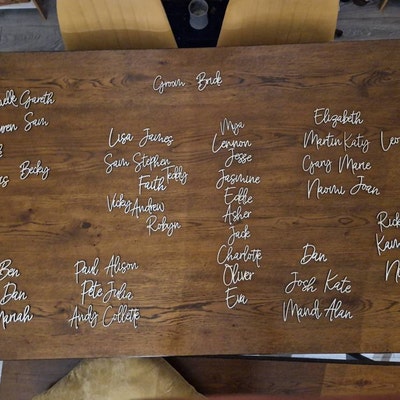 Groom Bride
Gareth
Sam
Becky
Lisa James
Sam Stephen
Teddy
Faith
Vicky Andrew
Robyn
Mya
Lennon
Jesse
Jasmine
Eddie
Asher
Jack
Charlotte
Oliver
Eva
Elizabeth
Martin Katy
Gary Marie
Naomi Joan
Ben
Dan
Paul Alison
Pete Julia
Andy Collette
Dan
Josh Kate
Mandi Alan